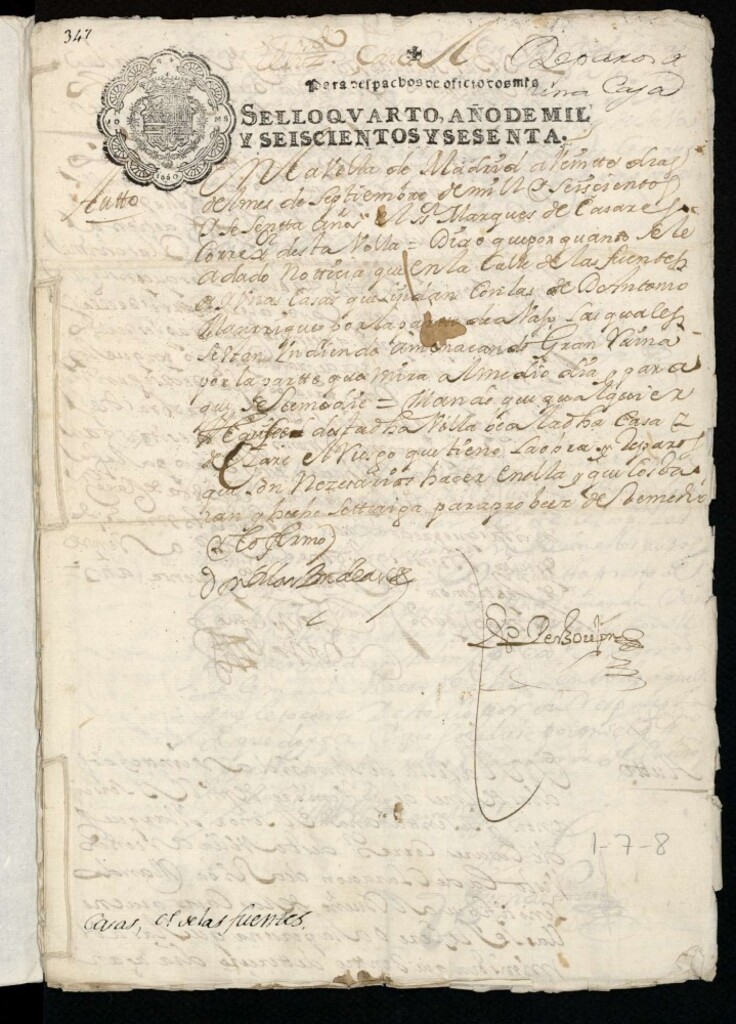 347
Reparos a
una Casa
Para despachos de oficio dos mrs
SELLO QVARTO, AÑO DE MIL
Y SEISCIENTOS Y SESENTA.
1660
Autto
En la Villa de Madrid a Veintte dias
del mes de septtiembre de mill y seiscientos
y sesentta años el Sr Marques de Casares
Correxr desta Villa = Dijo que por quanto se le
a dado Notticia que en la Calle de las fuentes
ay Unas Casas que lindan Con las de D Antonio
Manrrique por la parte
se estan Undiendo amenacando Gran Ruina
por la partte que mira a el medio dia y para
que se Remedie = Mando que qualquier
desta dha Villa bea la dha Casa
declare el Riesgo que tiene la obra y Reparos
que son Nezesarios hacer en ella y que los ba
y hecho se ttraiga para probeer de Remedio
y lo firmo
1-7-8
Casas, Cl de las fuentes.